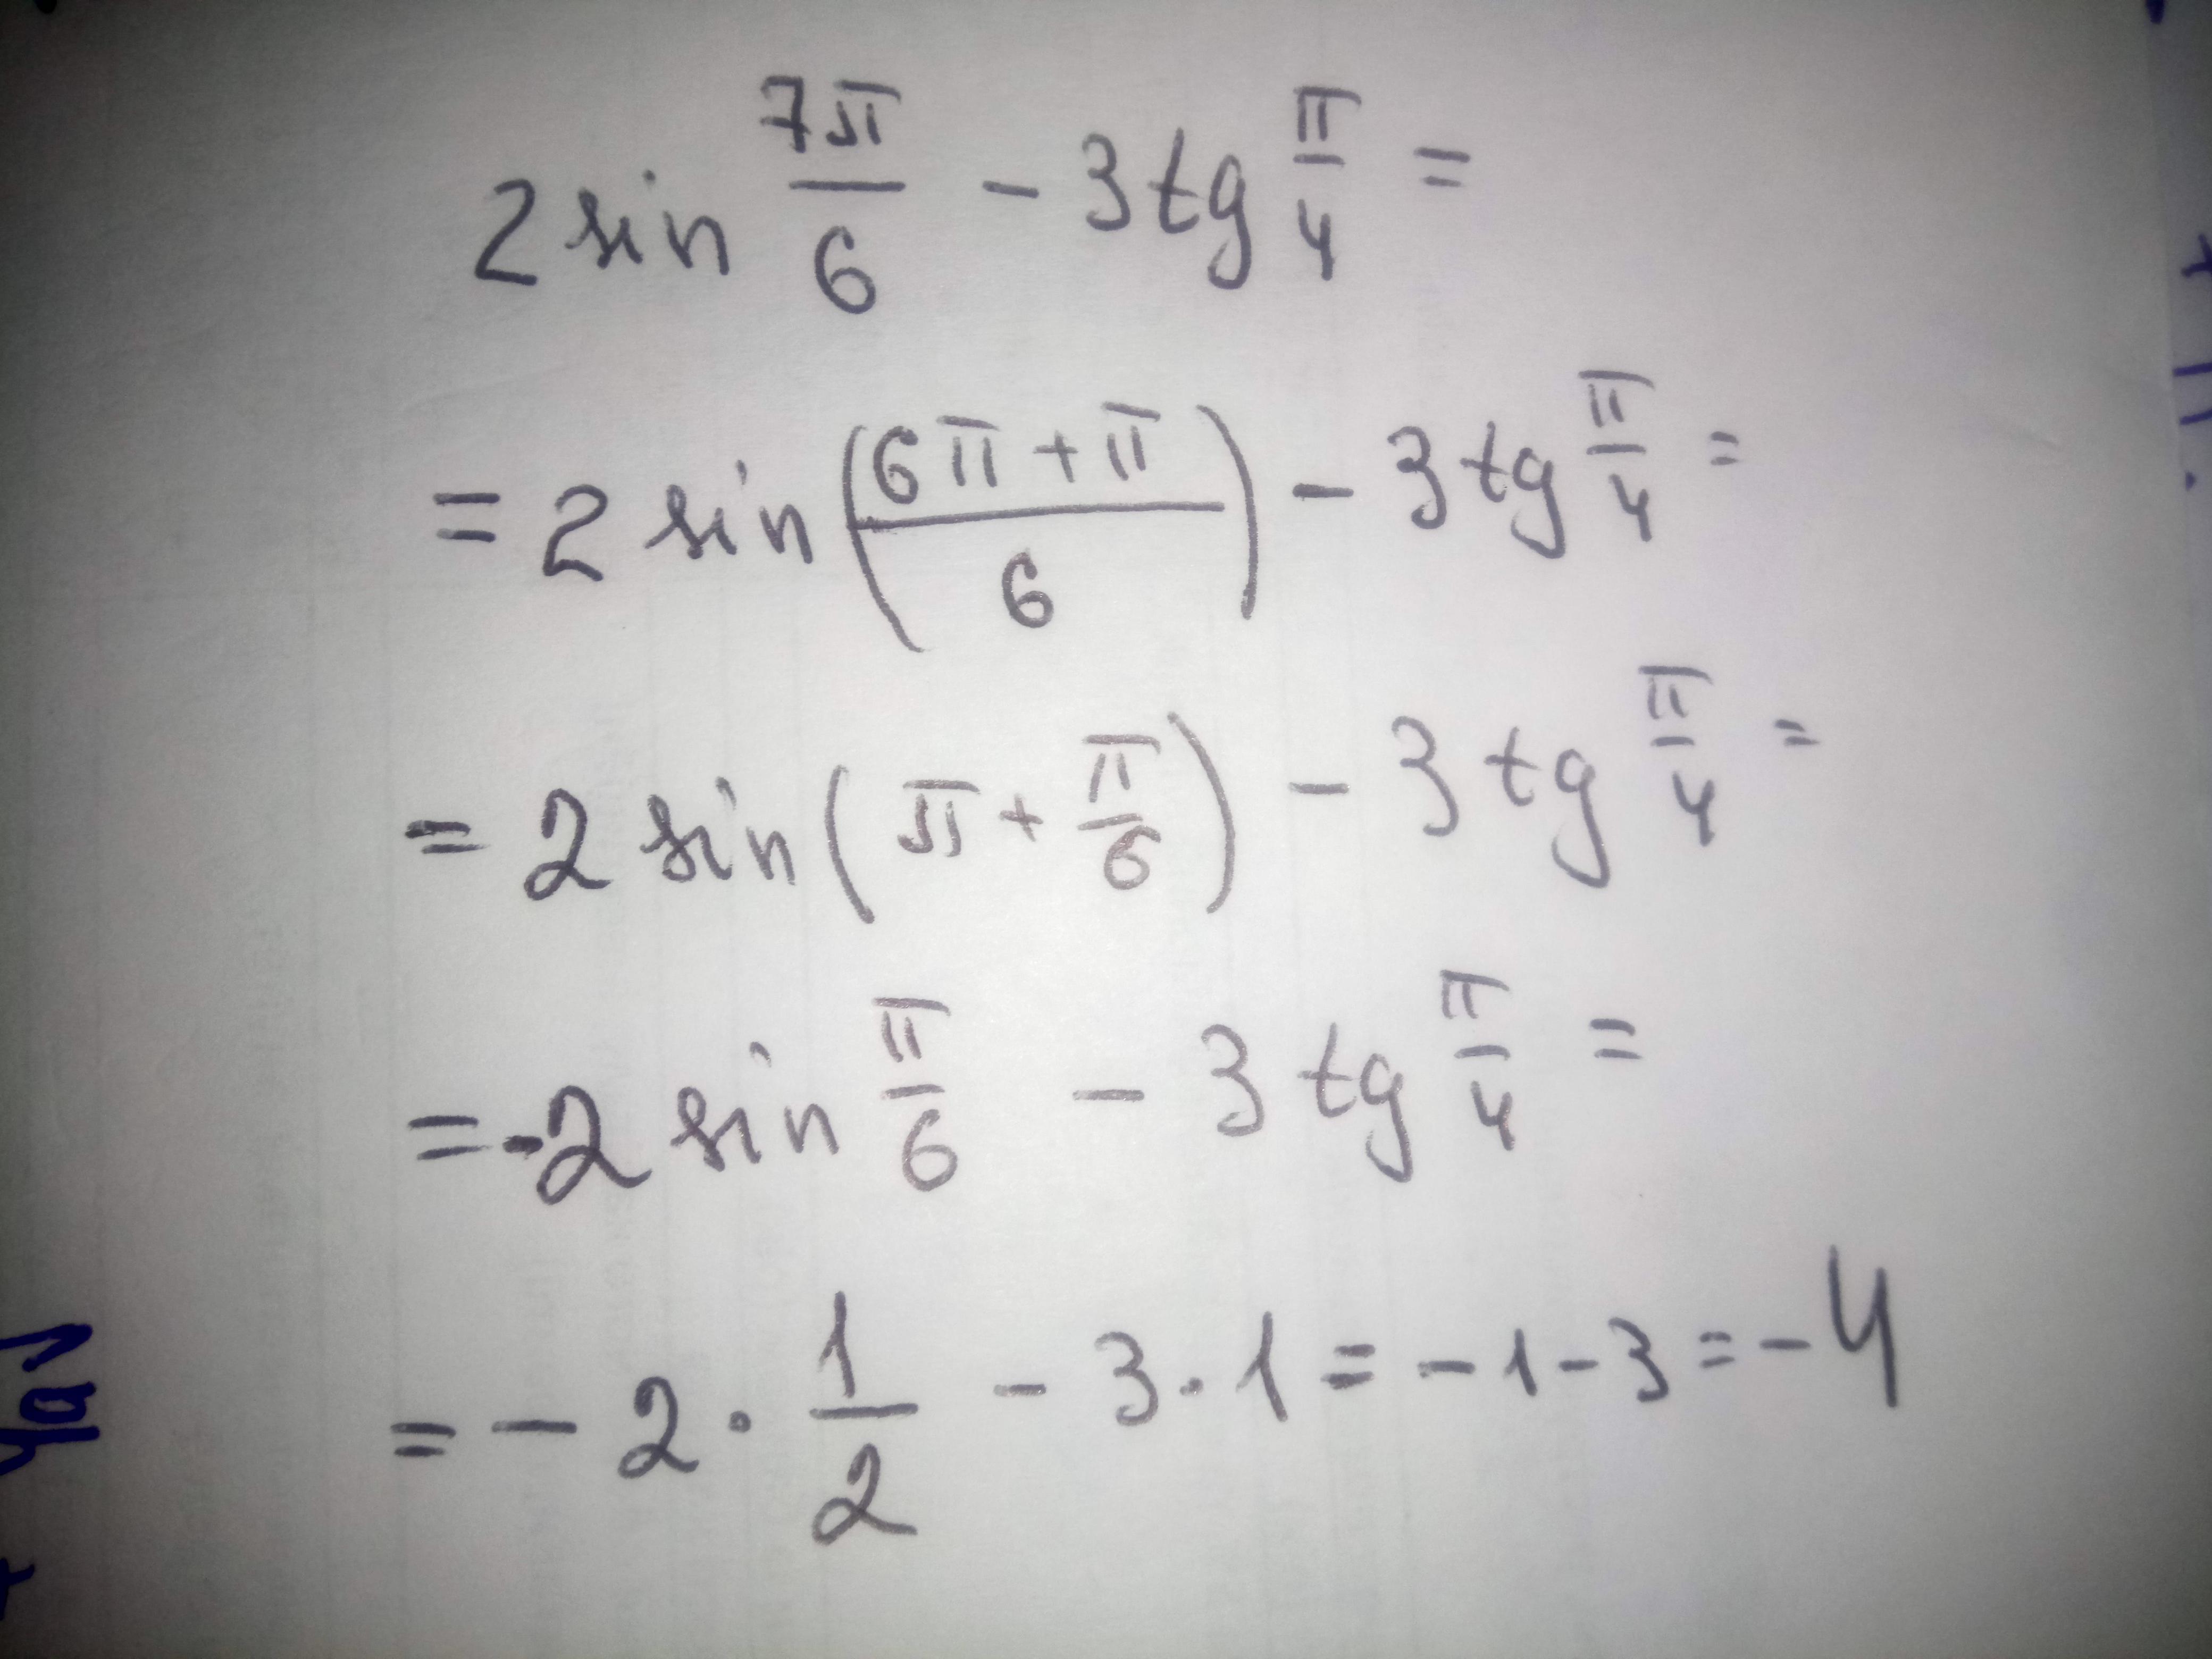 2 sin 7π/6 - 3 tg π/4 =
= 2 sin (6π + π / 6) - 3 tg π/4 =
= 2 sin (π + π/6) - 3 tg π/4 =
= -2 sin π/6 - 3 tg π/4 =
= - 2 · 1/2 - 3 · 1 = - 1 - 3 = - 4